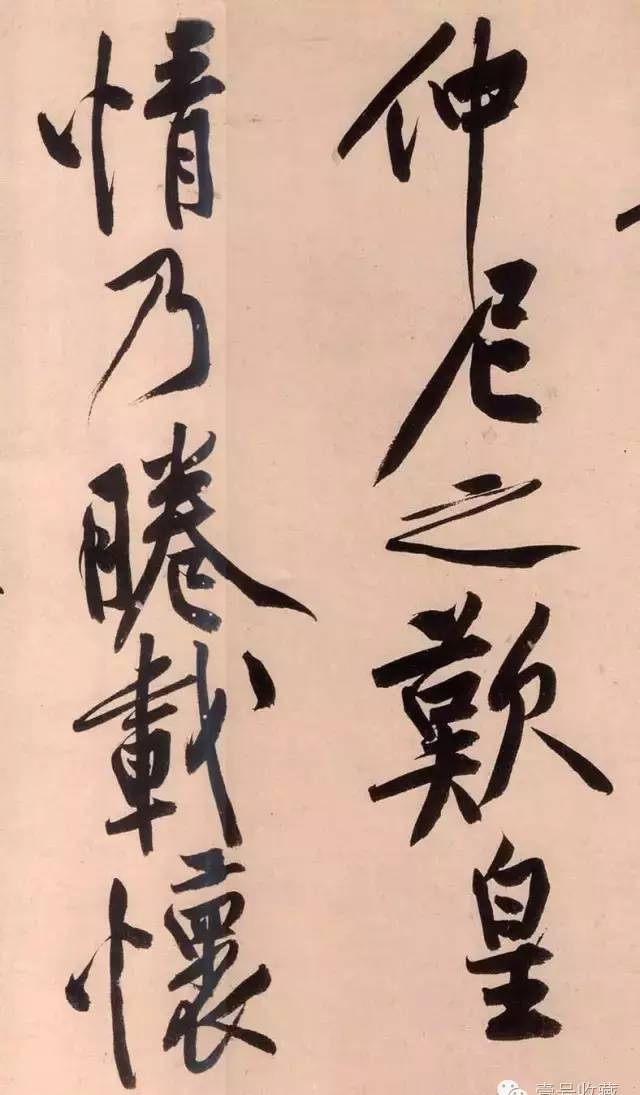 仲尼之歎皇
情乃睠載懷
壹号收藏